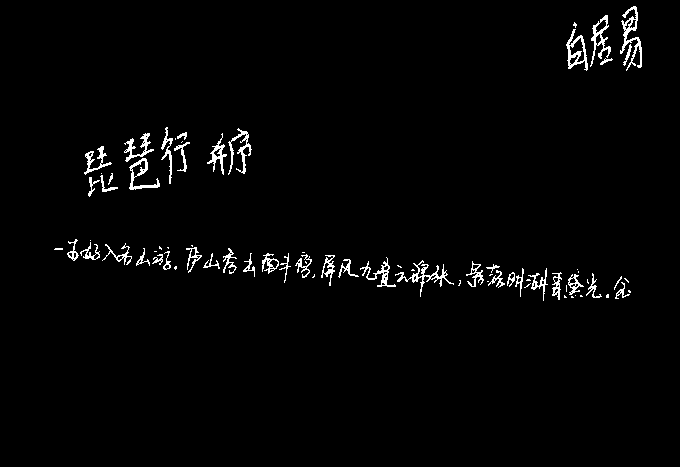 白居易
琵琶行 并序
一生好入名山游.庐山秀出南斗傍,屏风九叠云锦张,影落明湖青黛光.金